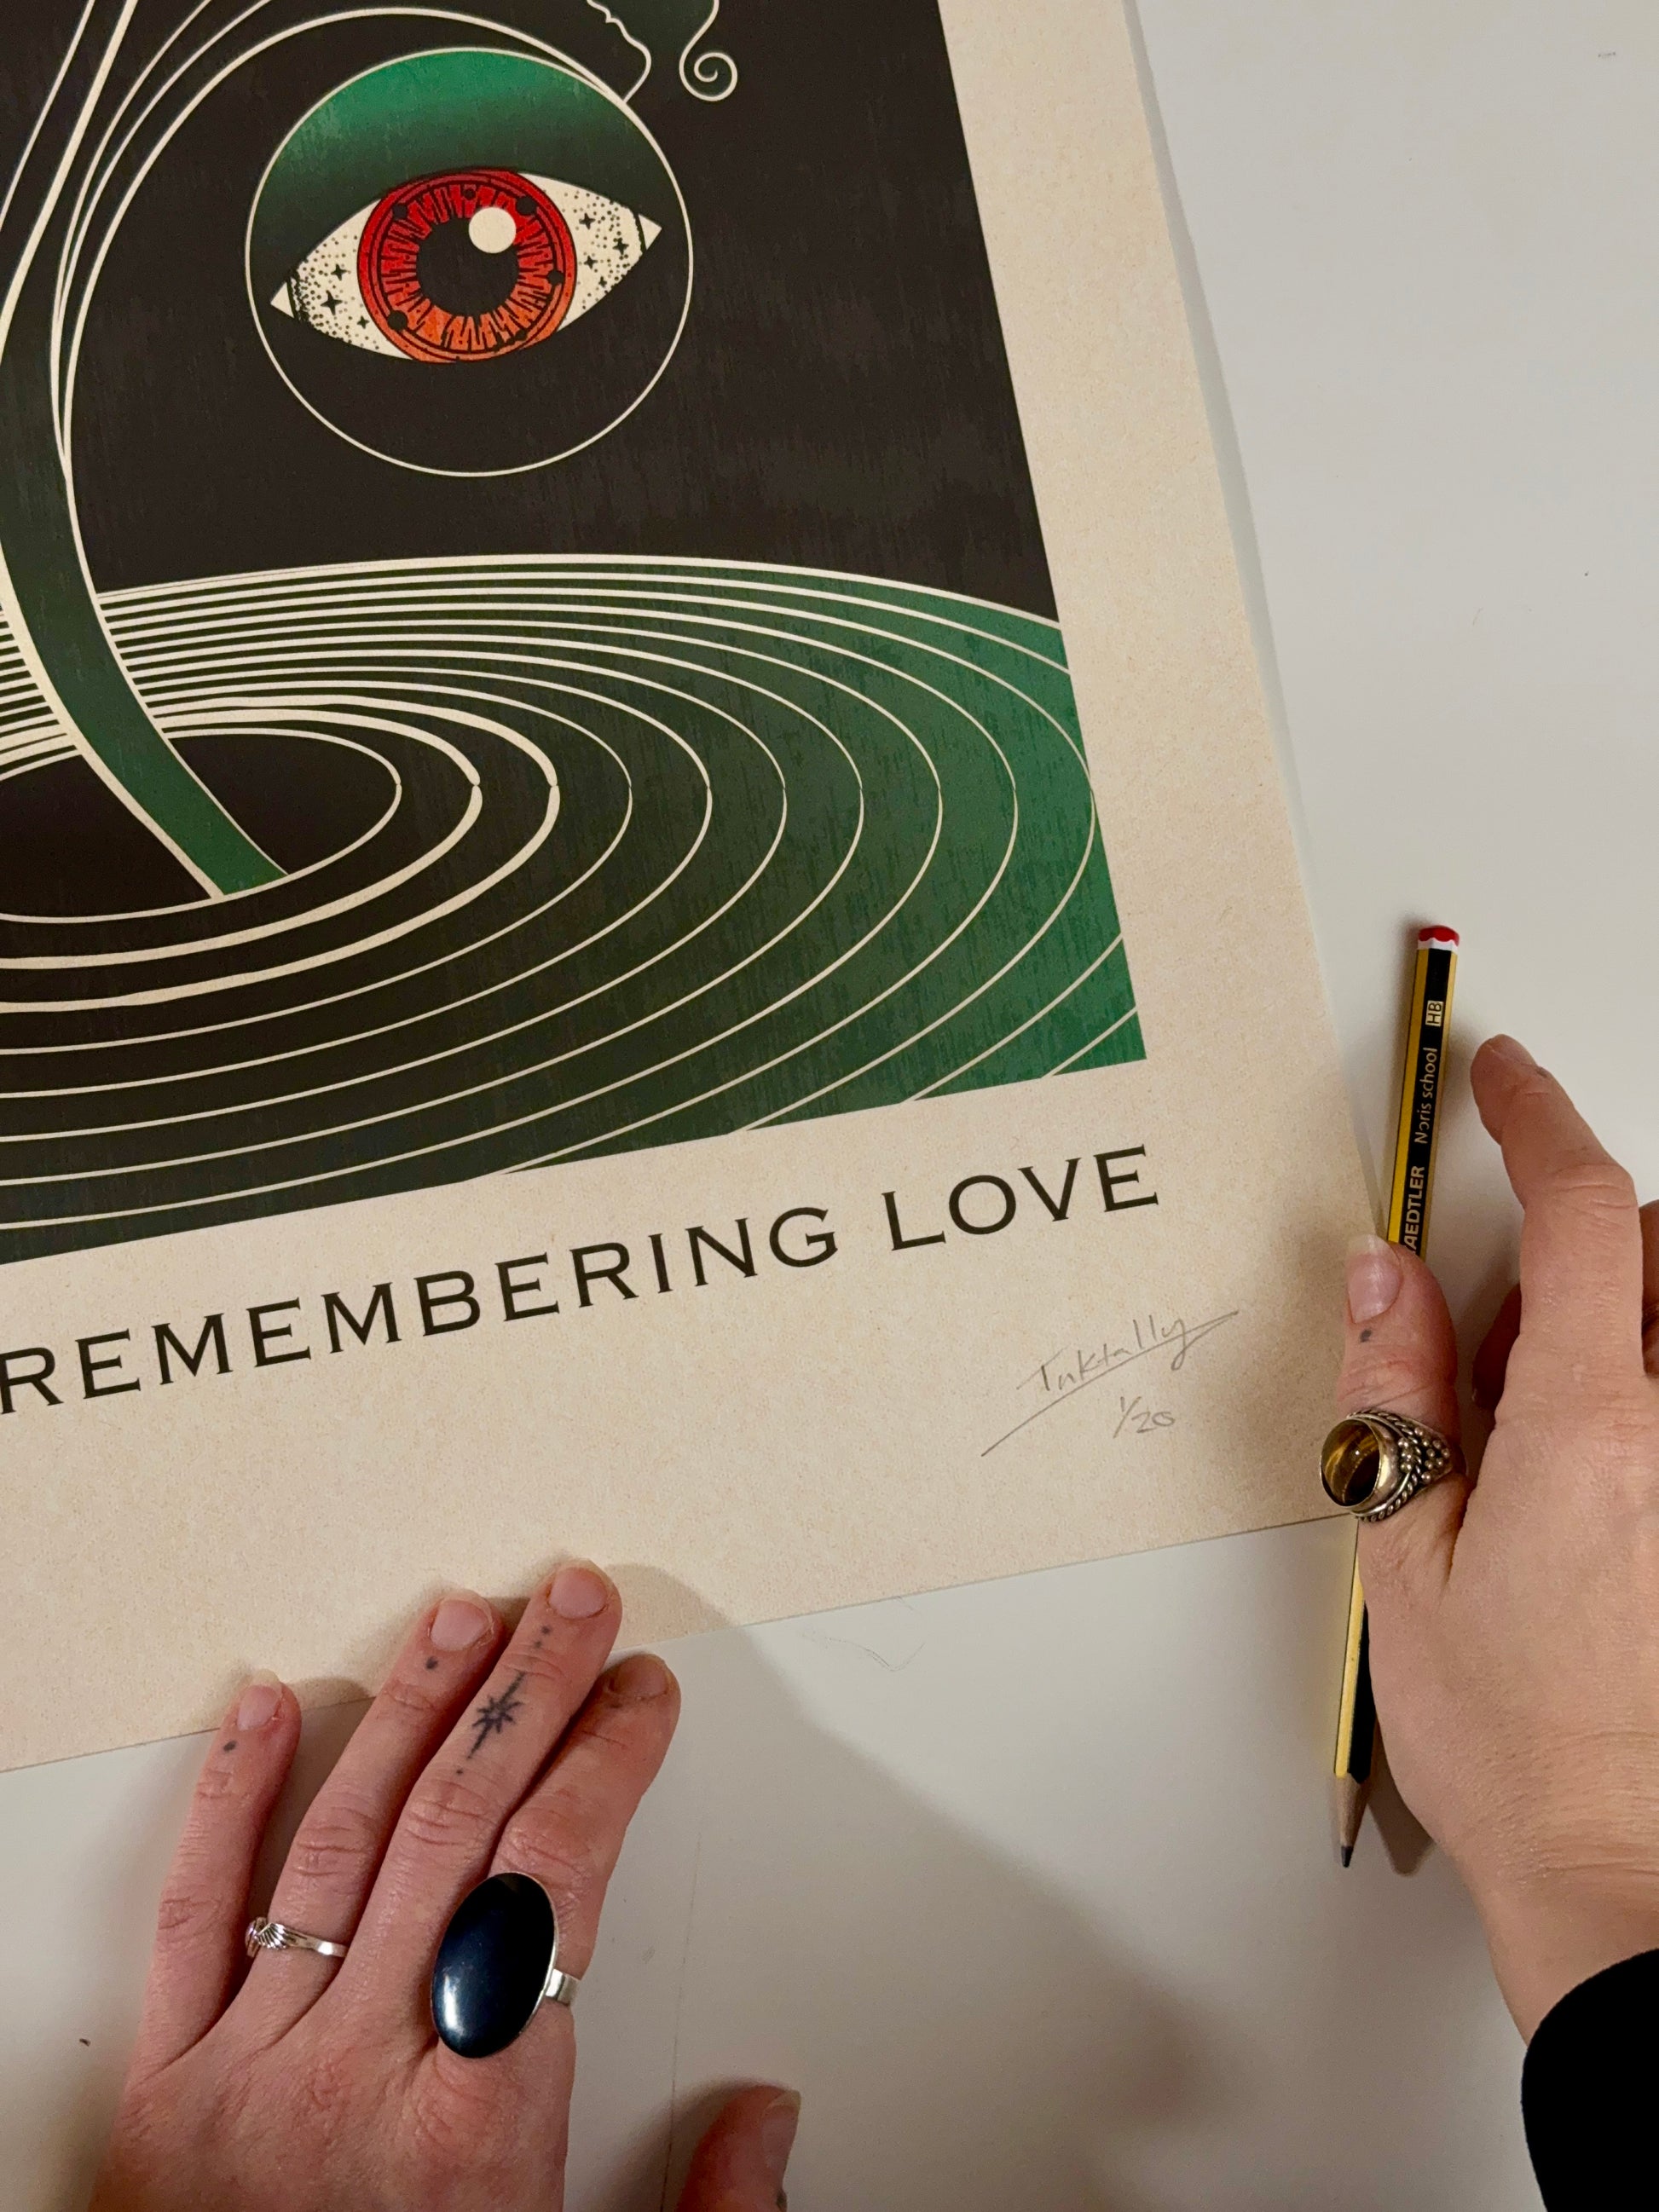 REMEMBERING LOVE
Inktally
1/20
AEDTLER Noris school HB